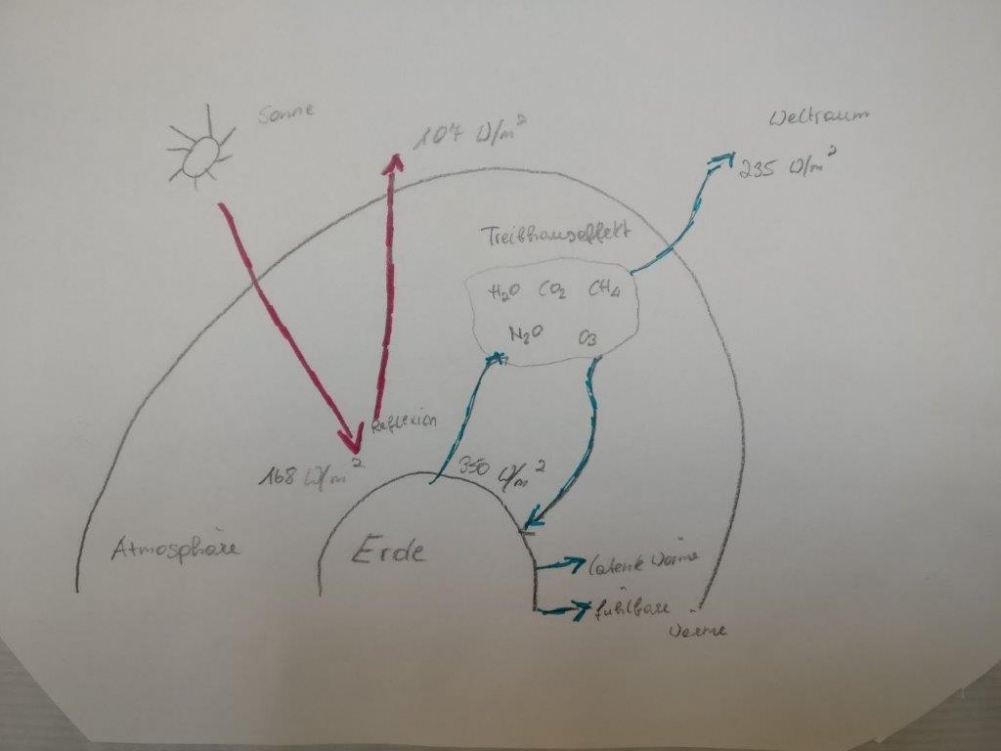 Sonne
107 W/m²
Weltraum
235 W/m²
Treibhauseffekt
H₂O CO₂ CH₄
N₂O O₃
Reflexion
168 W/m²
350 W/m²
Atmosphäre
Erde
latente Wärme
fühlbare
Wärme